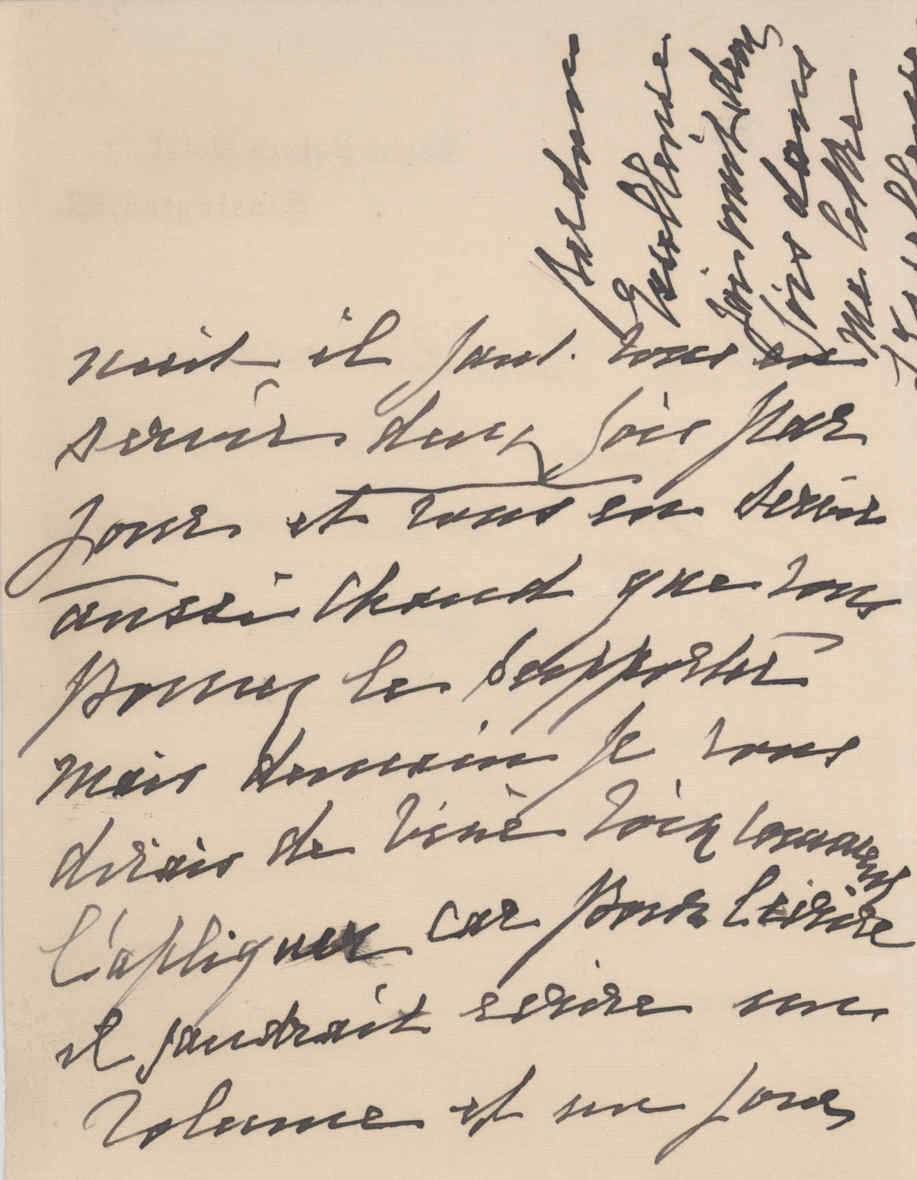 nuit il faut vous en
servir deux fois par
jour et vous en servir
aussi chaud que vous
pouvez le supporter
mais demain je vous
dirais de vive voix comment
l'apliquer car pour l'ecrire
il faudrait ecrire un
volume et un jour
pardon
Excellence
dans
ma lettre